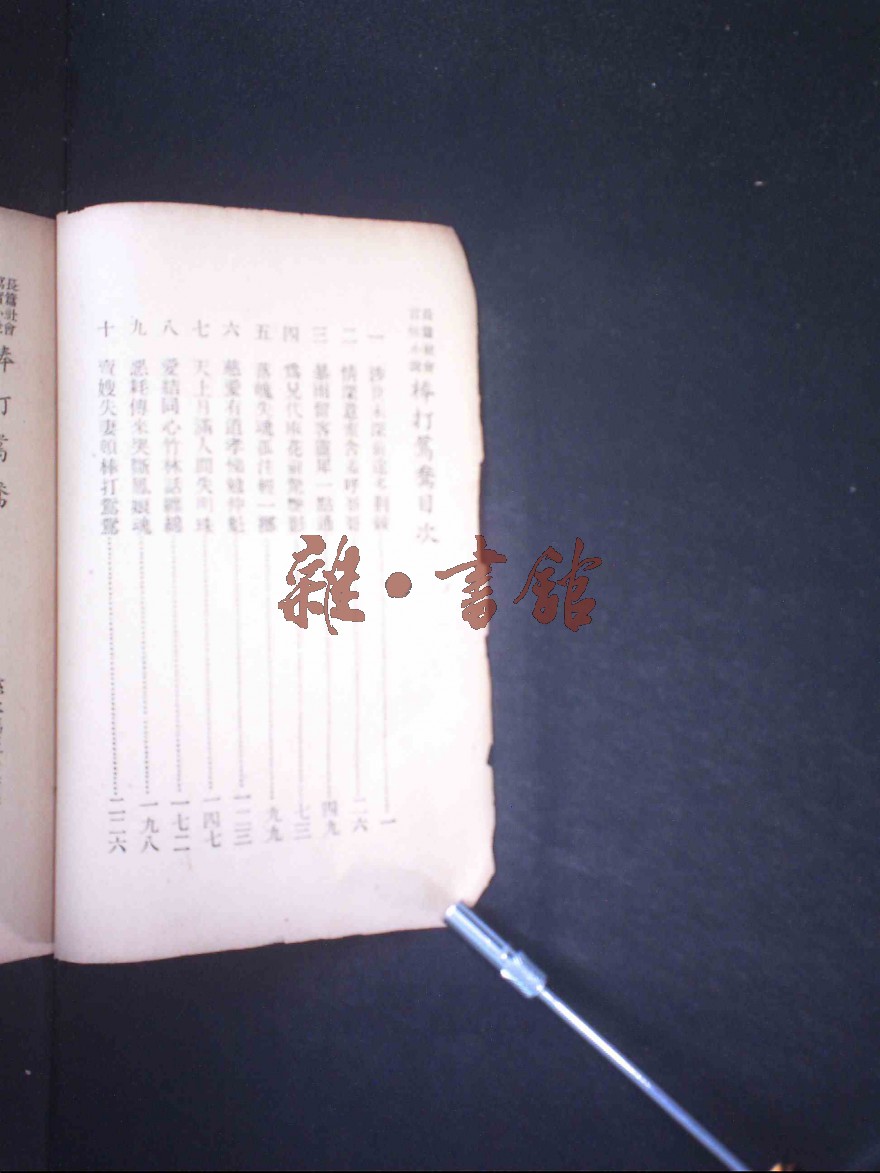 長篇社會
言情小說
棒打鴛鴦目次
一 涉世未深前途多荊棘 一
二 情深意 舍 呼 二六
三 暴雨留客 犀一點通 四九
四 爲兄代庖花前驚艷影 七三
五 落魄失魂孤注輕一擲 九九
六 慈愛有道孝悌魁仲 一二三
七 天上月滿人間失明珠 一四七
八 愛結同心竹林話纏綿 一七二
九 惡耗傳來哭斷鳳娘魂 一九八
十 賣嫂失妻頓棒打鴛鴦 二二六
長篇社會
棒打鴛鴦
雜·書館